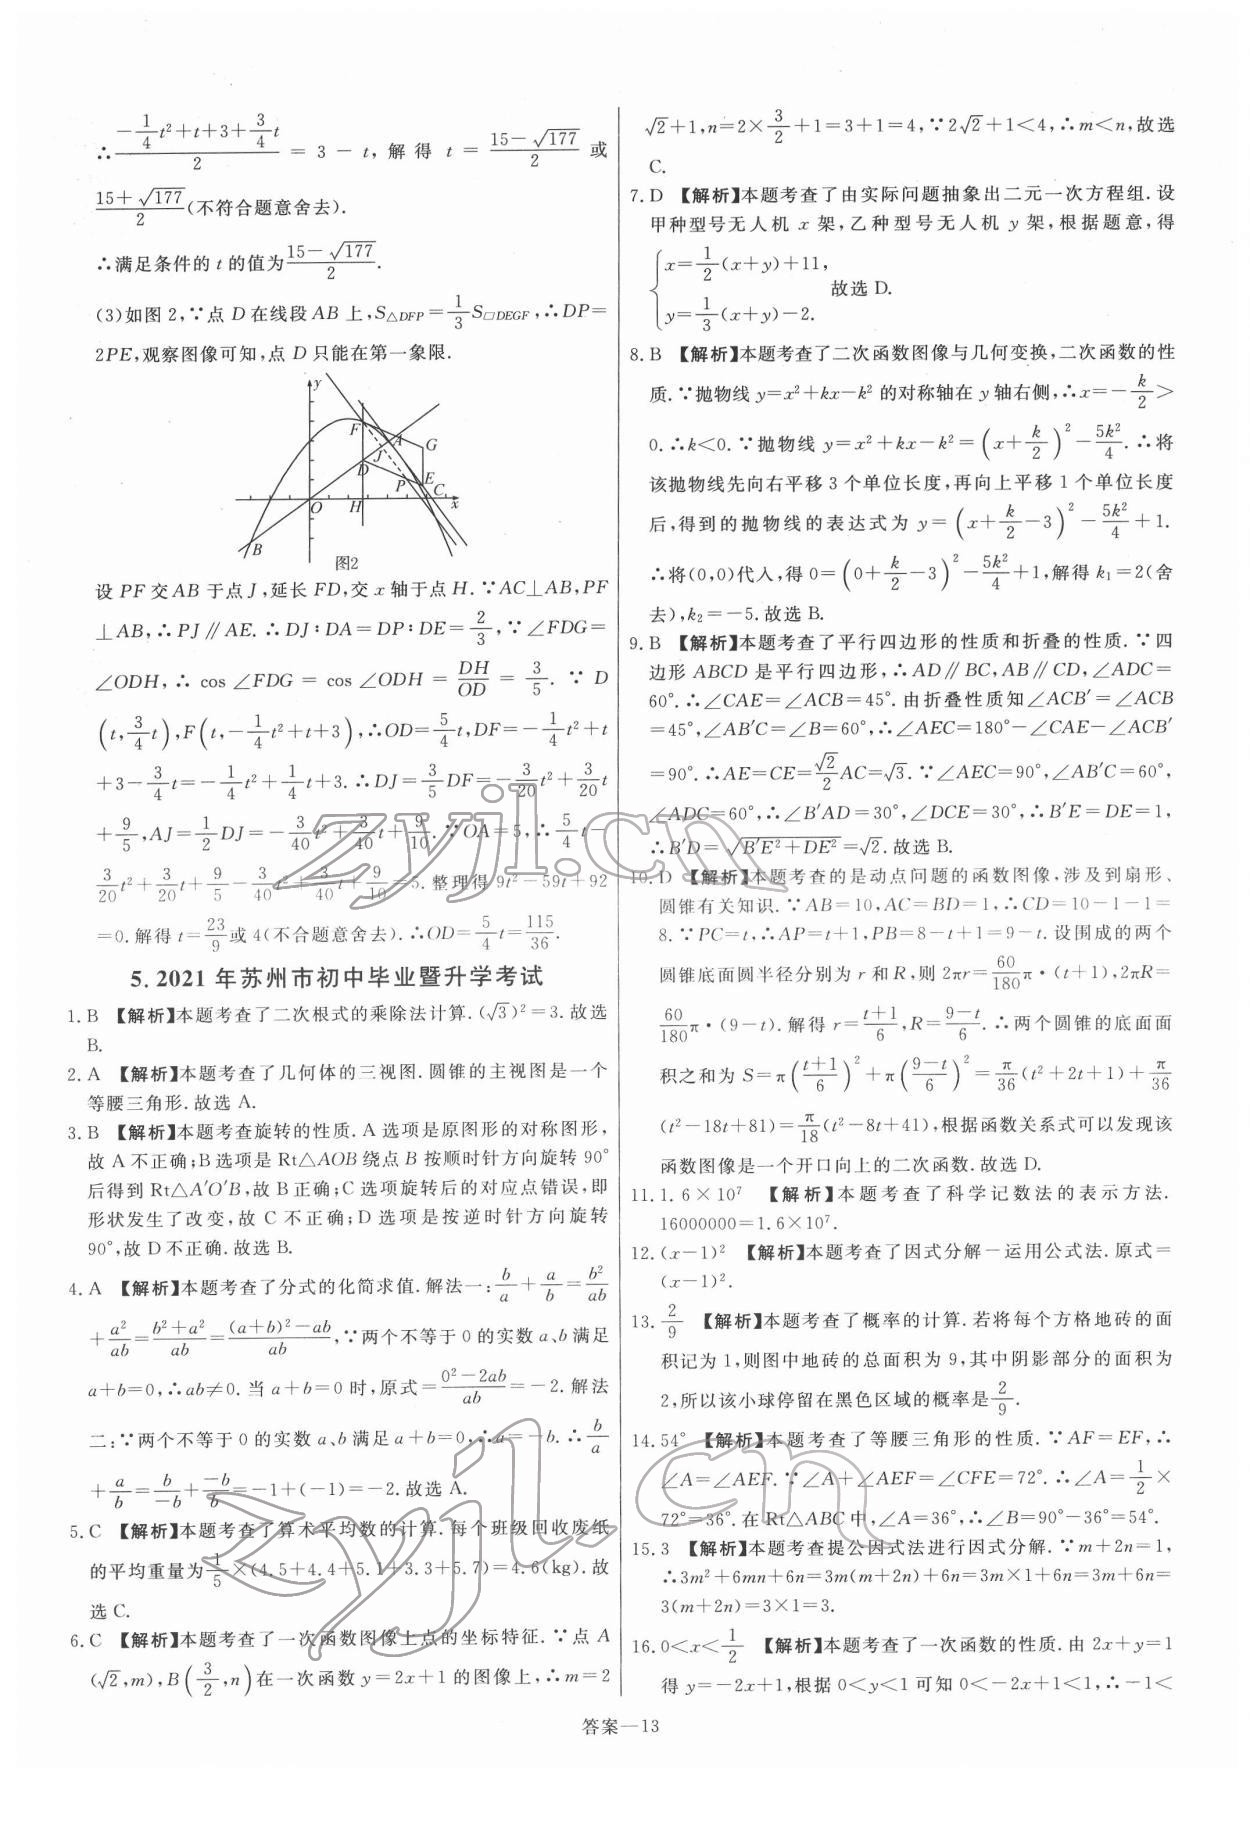 ∴(-1/4 t²+t+3+3/4 t)/2 = 3-t,解得 t=(15-√177)/2 或
(15+√177)/2(不符合题意舍去).
∴满足条件的 t 的值为(15-√177)/2.
(3)如图 2,∵点 D 在线段 AB 上,S△DFP=1/3 S□DEGF,∴DP=
2PE,观察图像可知,点 D 只能在第一象限.
y
F
A
G
J
D
E
P
C
O
H
x
B
图2
设 PF 交 AB 于点 J,延长 FD,交 x 轴于点 H.∵AC⊥AB,PF
⊥AB,∴PJ∥AE.∴DJ∶DA=DP∶DE=2/3,∵∠FDG=
∠ODH,∴cos∠FDG=cos∠ODH=DH/OD=3/5.∵D
(t,3/4 t),F(t,-1/4 t²+t+3),∴OD=5/4 t,DF=-1/4 t²+t
+3-3/4 t=-1/4 t²+1/4 t+3.∴DJ=3/5 DF=-3/20 t²+3/20 t
+9/5,AJ=1/2 DJ=-3/40 t²+3/40 t+9/10.∵OA=5,∴5/4 t-
3/20 t²+3/20 t+9/5-3/40 t²+3/40 t+9/10=5.整理得 9t²-59t+92
=0.解得 t=23/9 或 4(不合题意舍去).∴OD=5/4 t=115/36.
5. 2021 年苏州市初中毕业暨升学考试
1. B 【解析】本题考查了二次根式的乘除法计算.(√3)²=3.故选
B.
2. A 【解析】本题考查了几何体的三视图.圆锥的主视图是一个
等腰三角形.故选 A.
3. B 【解析】本题考查旋转的性质.A 选项是原图形的对称图形,
故 A 不正确;B 选项是 Rt△AOB 绕点 B 按顺时针方向旋转 90°
后得到 Rt△A′O′B,故 B 正确;C 选项旋转后的对应点错误,即
形状发生了改变,故 C 不正确;D 选项是按逆时针方向旋转
90°,故 D 不正确.故选 B.
4. A 【解析】本题考查了分式的化简求值.解法一:b/a+a/b=b²/ab
+a²/ab=(b²+a²)/ab=((a+b)²-ab)/ab,∵两个不等于 0 的实数 a、b 满足
a+b=0,∴ab≠0.当 a+b=0 时,原式=(0²-2ab)/ab=-2.解法
二:∵两个不等于 0 的实数 a、b 满足 a+b=0,∴a=-b.∴b/a
+a/b=b/-b+-b/b=-1+(-1)=-2.故选 A.
5. C 【解析】本题考查了算术平均数的计算.每个班级回收废纸
的平均重量为1/5×(4.5+4.4+5.1+3.3+5.7)=4.6(kg).故
选 C.
6. C 【解析】本题考查了一次函数图像上点的坐标特征.∵点 A
(√2,m),B(3/2,n)在一次函数 y=2x+1 的图像上,∴m=2
√2+1,n=2×3/2+1=3+1=4,∵2√2+1<4,∴m<n,故选
C.
7. D 【解析】本题考查了由实际问题抽象出二元一次方程组.设
甲种型号无人机 x 架,乙种型号无人机 y 架,根据题意,得
{x=1/2(x+y)+11,
y=1/3(x+y)-2.
故选 D.
8. B 【解析】本题考查了二次函数图像与几何变换,二次函数的性
质.∵抛物线 y=x²+kx-k² 的对称轴在 y 轴右侧,∴x=-k/2>
0.∴k<0.∵抛物线 y=x²+kx-k²=(x+k/2)²-5k²/4.∴将
该抛物线先向右平移 3 个单位长度,再向上平移 1 个单位长度
后,得到的抛物线的表达式为 y=(x+k/2-3)²-5k²/4+1.
∴将(0,0)代入,得 0=(0+k/2-3)²-5k²/4+1,解得 k₁=2(舍
去),k₂=-5.故选 B.
9. B 【解析】本题考查了平行四边形的性质和折叠的性质.∵四
边形 ABCD 是平行四边形,∴AD∥BC,AB∥CD,∠ADC=
60°.∴∠CAE=∠ACB=45°.由折叠性质知∠ACB′=∠ACB
=45°,∠AB′C=∠B=60°,∴∠AEC=180°-∠CAE-∠ACB′
=90°.∴AE=CE=√2/2 AC=√3.∵∠AEC=90°,∠AB′C=60°,
∠ADC=60°,∴∠B′AD=30°,∠DCE=30°,∴B′E=DE=1,
∴B′D=√(B′E²+DE²)=√2.故选 B.
10. D 【解析】本题考查的是动点问题的函数图像,涉及到扇形、
圆锥有关知识.∵AB=10,AC=BD=1,∴CD=10-1-1=
8.∵PC=t,∴AP=t+1,PB=8-t+1=9-t.设围成的两个
圆锥底面圆半径分别为 r 和 R,则 2πr=60/180 π·(t+1),2πR=
60/180 π·(9-t).解得 r=(t+1)/6,R=(9-t)/6.∴两个圆锥的底面面
积之和为 S=π((t+1)/6)²+π((9-t)/6)²=π/36(t²+2t+1)+π/36
(t²-18t+81)=π/18(t²-8t+41),根据函数关系式可以发现该
函数图像是一个开口向上的二次函数.故选 D.
11. 1.6×10⁷ 【解析】本题考查了科学记数法的表示方法.
16000000=1.6×10⁷.
12. (x-1)² 【解析】本题考查了因式分解-运用公式法.原式=
(x-1)².
13. 2/9 【解析】本题考查了概率的计算.若将每个方格地砖的面
积记为 1,则图中地砖的总面积为 9,其中阴影部分的面积为
2,所以该小球停留在黑色区域的概率是2/9.
14. 54° 【解析】本题考查了等腰三角形的性质.∵AF=EF,∴
∠A=∠AEF.∵∠A+∠AEF=∠CFE=72°.∴∠A=1/2×
72°=36°.在 Rt△ABC 中,∠A=36°,∴∠B=90°-36°=54°.
15. 3 【解析】本题考查提公因式法进行因式分解.∵m+2n=1,
∴3m²+6mn+6n=3m(m+2n)+6n=3m×1+6n=3m+6n=
3(m+2n)=3×1=3.
16. 0<x<1/2 【解析】本题考查了一次函数的性质.由 2x+y=1
得 y=-2x+1,根据 0<y<1 可知 0<-2x+1<1,∴-1<
答案—13
zyjl.cn
zyjl.cn